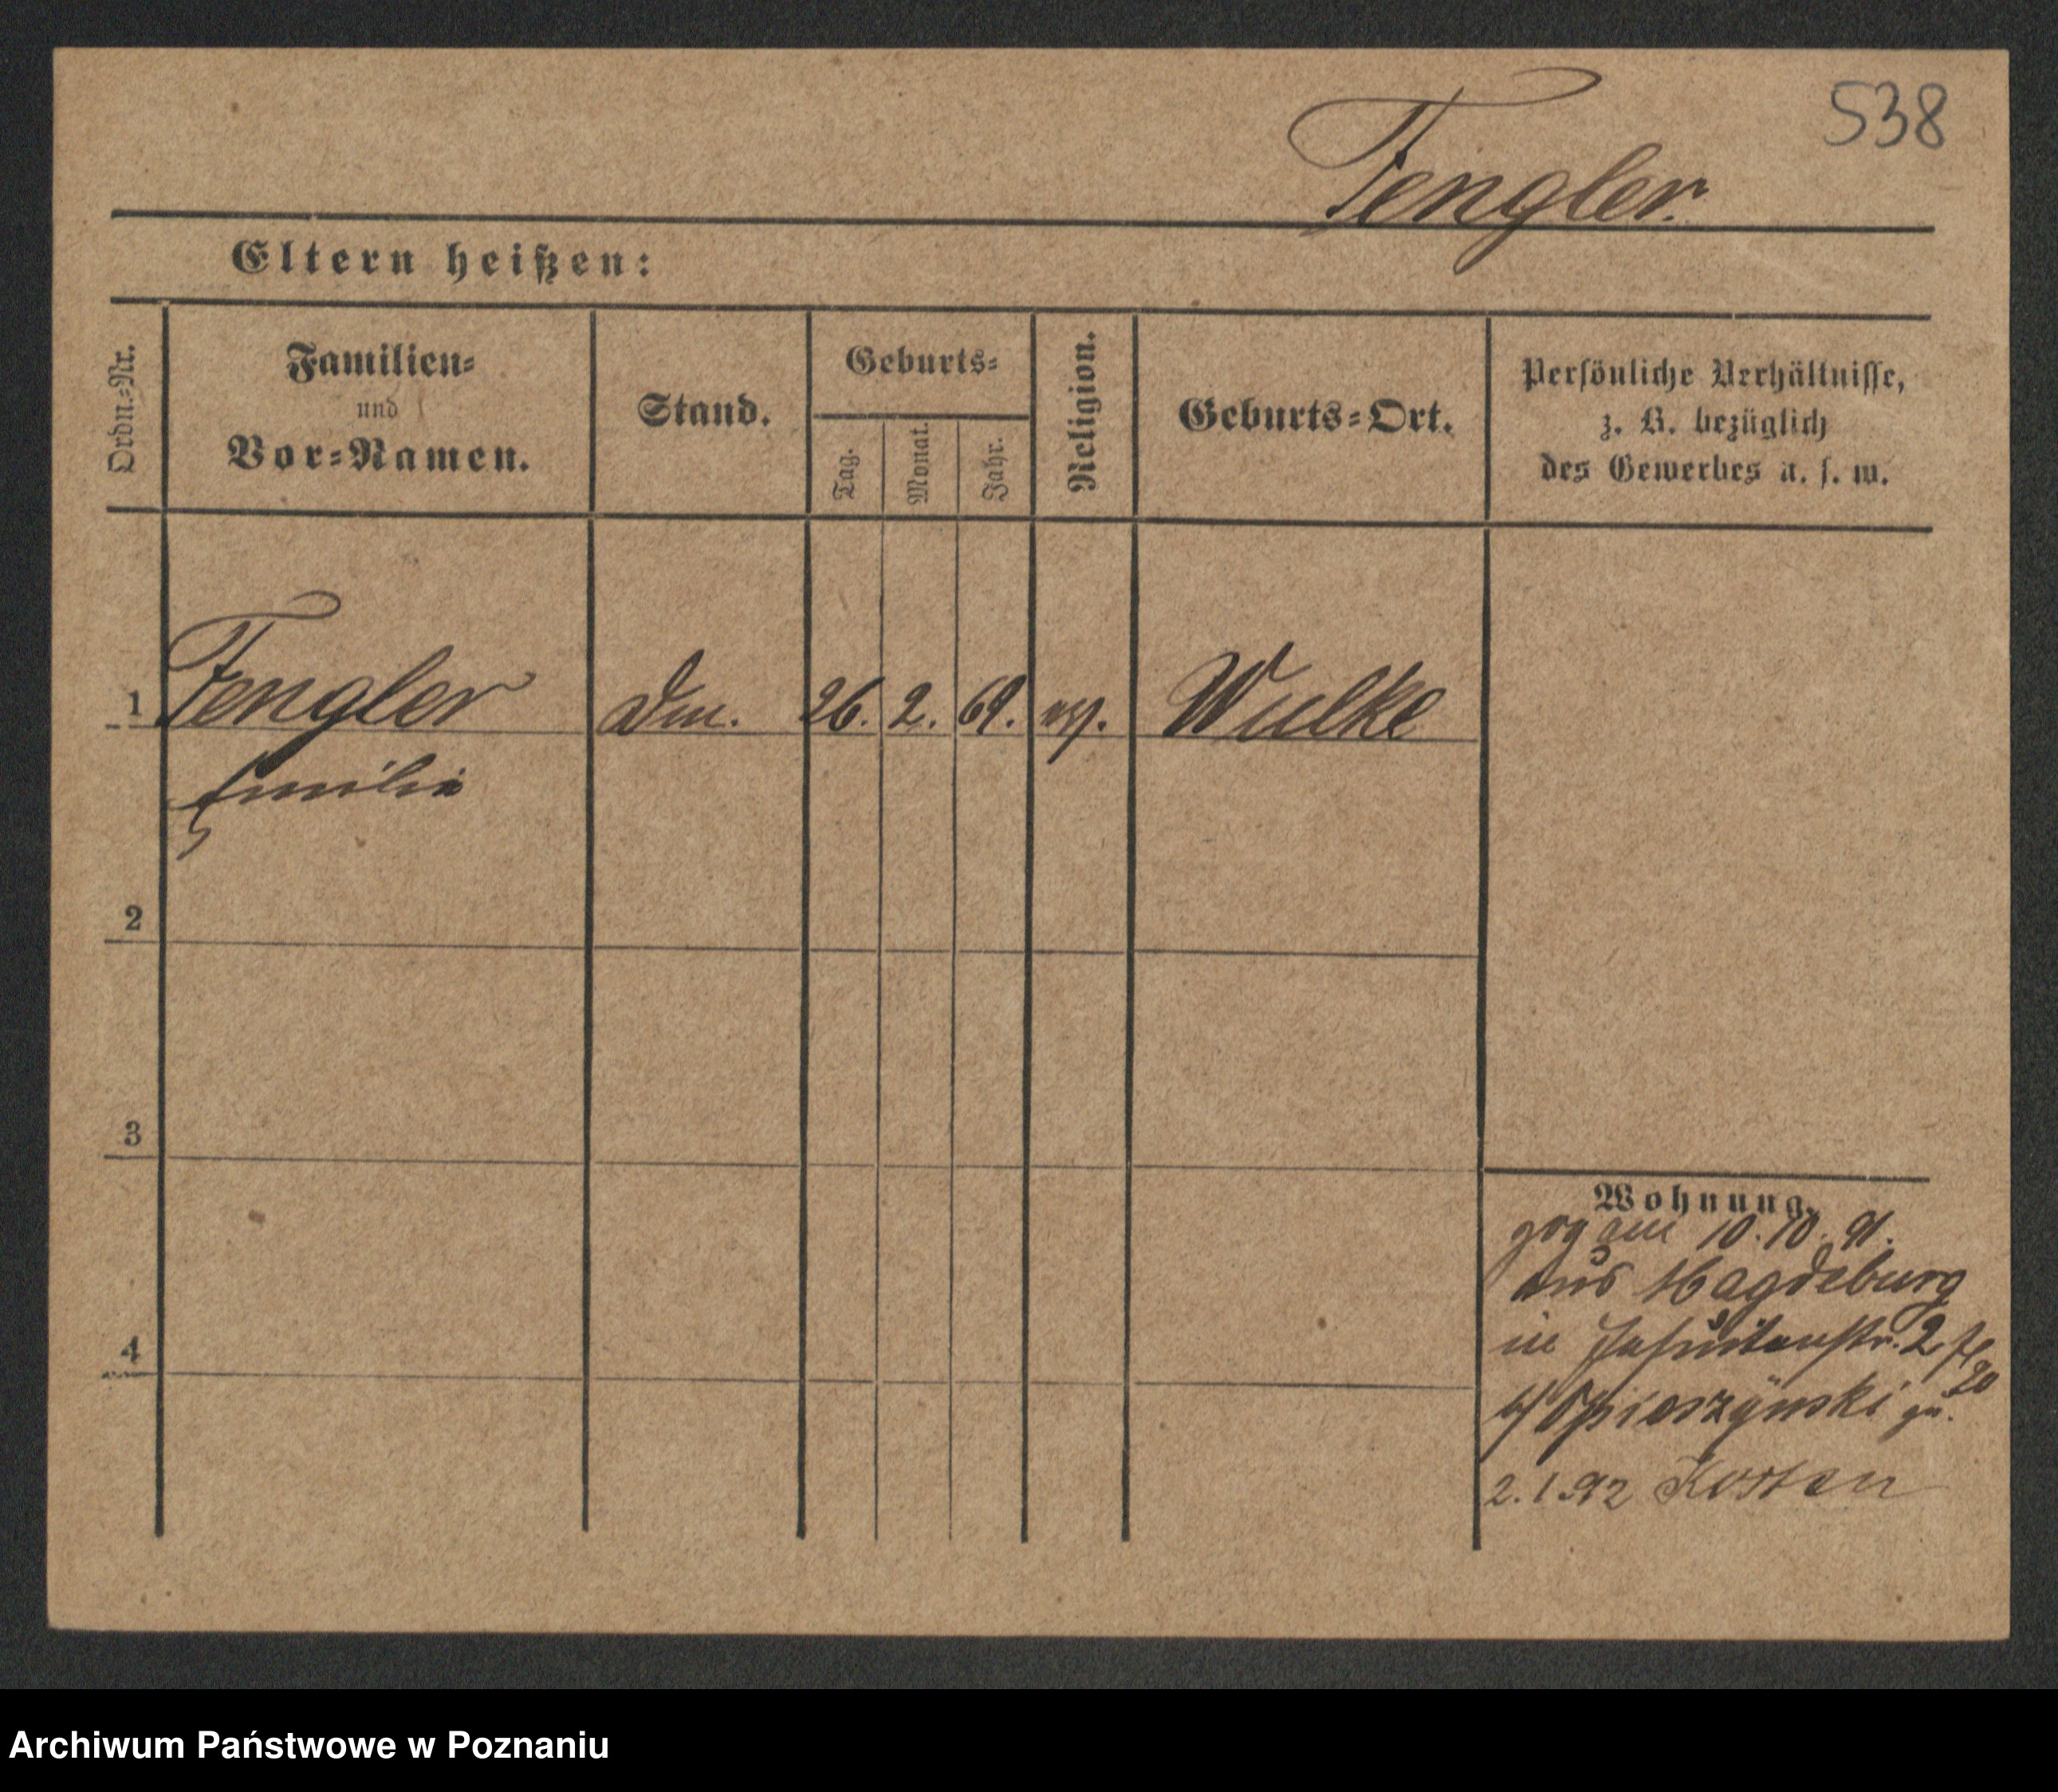 538
Fengler.
Eltern heißen:
Ordn.-Nr.
Familien-
und
Vor-Namen.
Stand.
Geburts-
Tag.
Monat.
Jahr.
Religion.
Geburts-Ort.
Persönliche Verhältnisse,
z. B. bezüglich
des Gewerbes u. s. w.
1 Fengler 26. 2. 69. Wulke
Emilie
2
3
4
Wohnung.
zog am 10.10.91.
aus Magdeburg
in Jesuitenstr. 2
b/ Opieszynski
2.1.92 Kosten
Archiwum Państwowe w Poznaniu